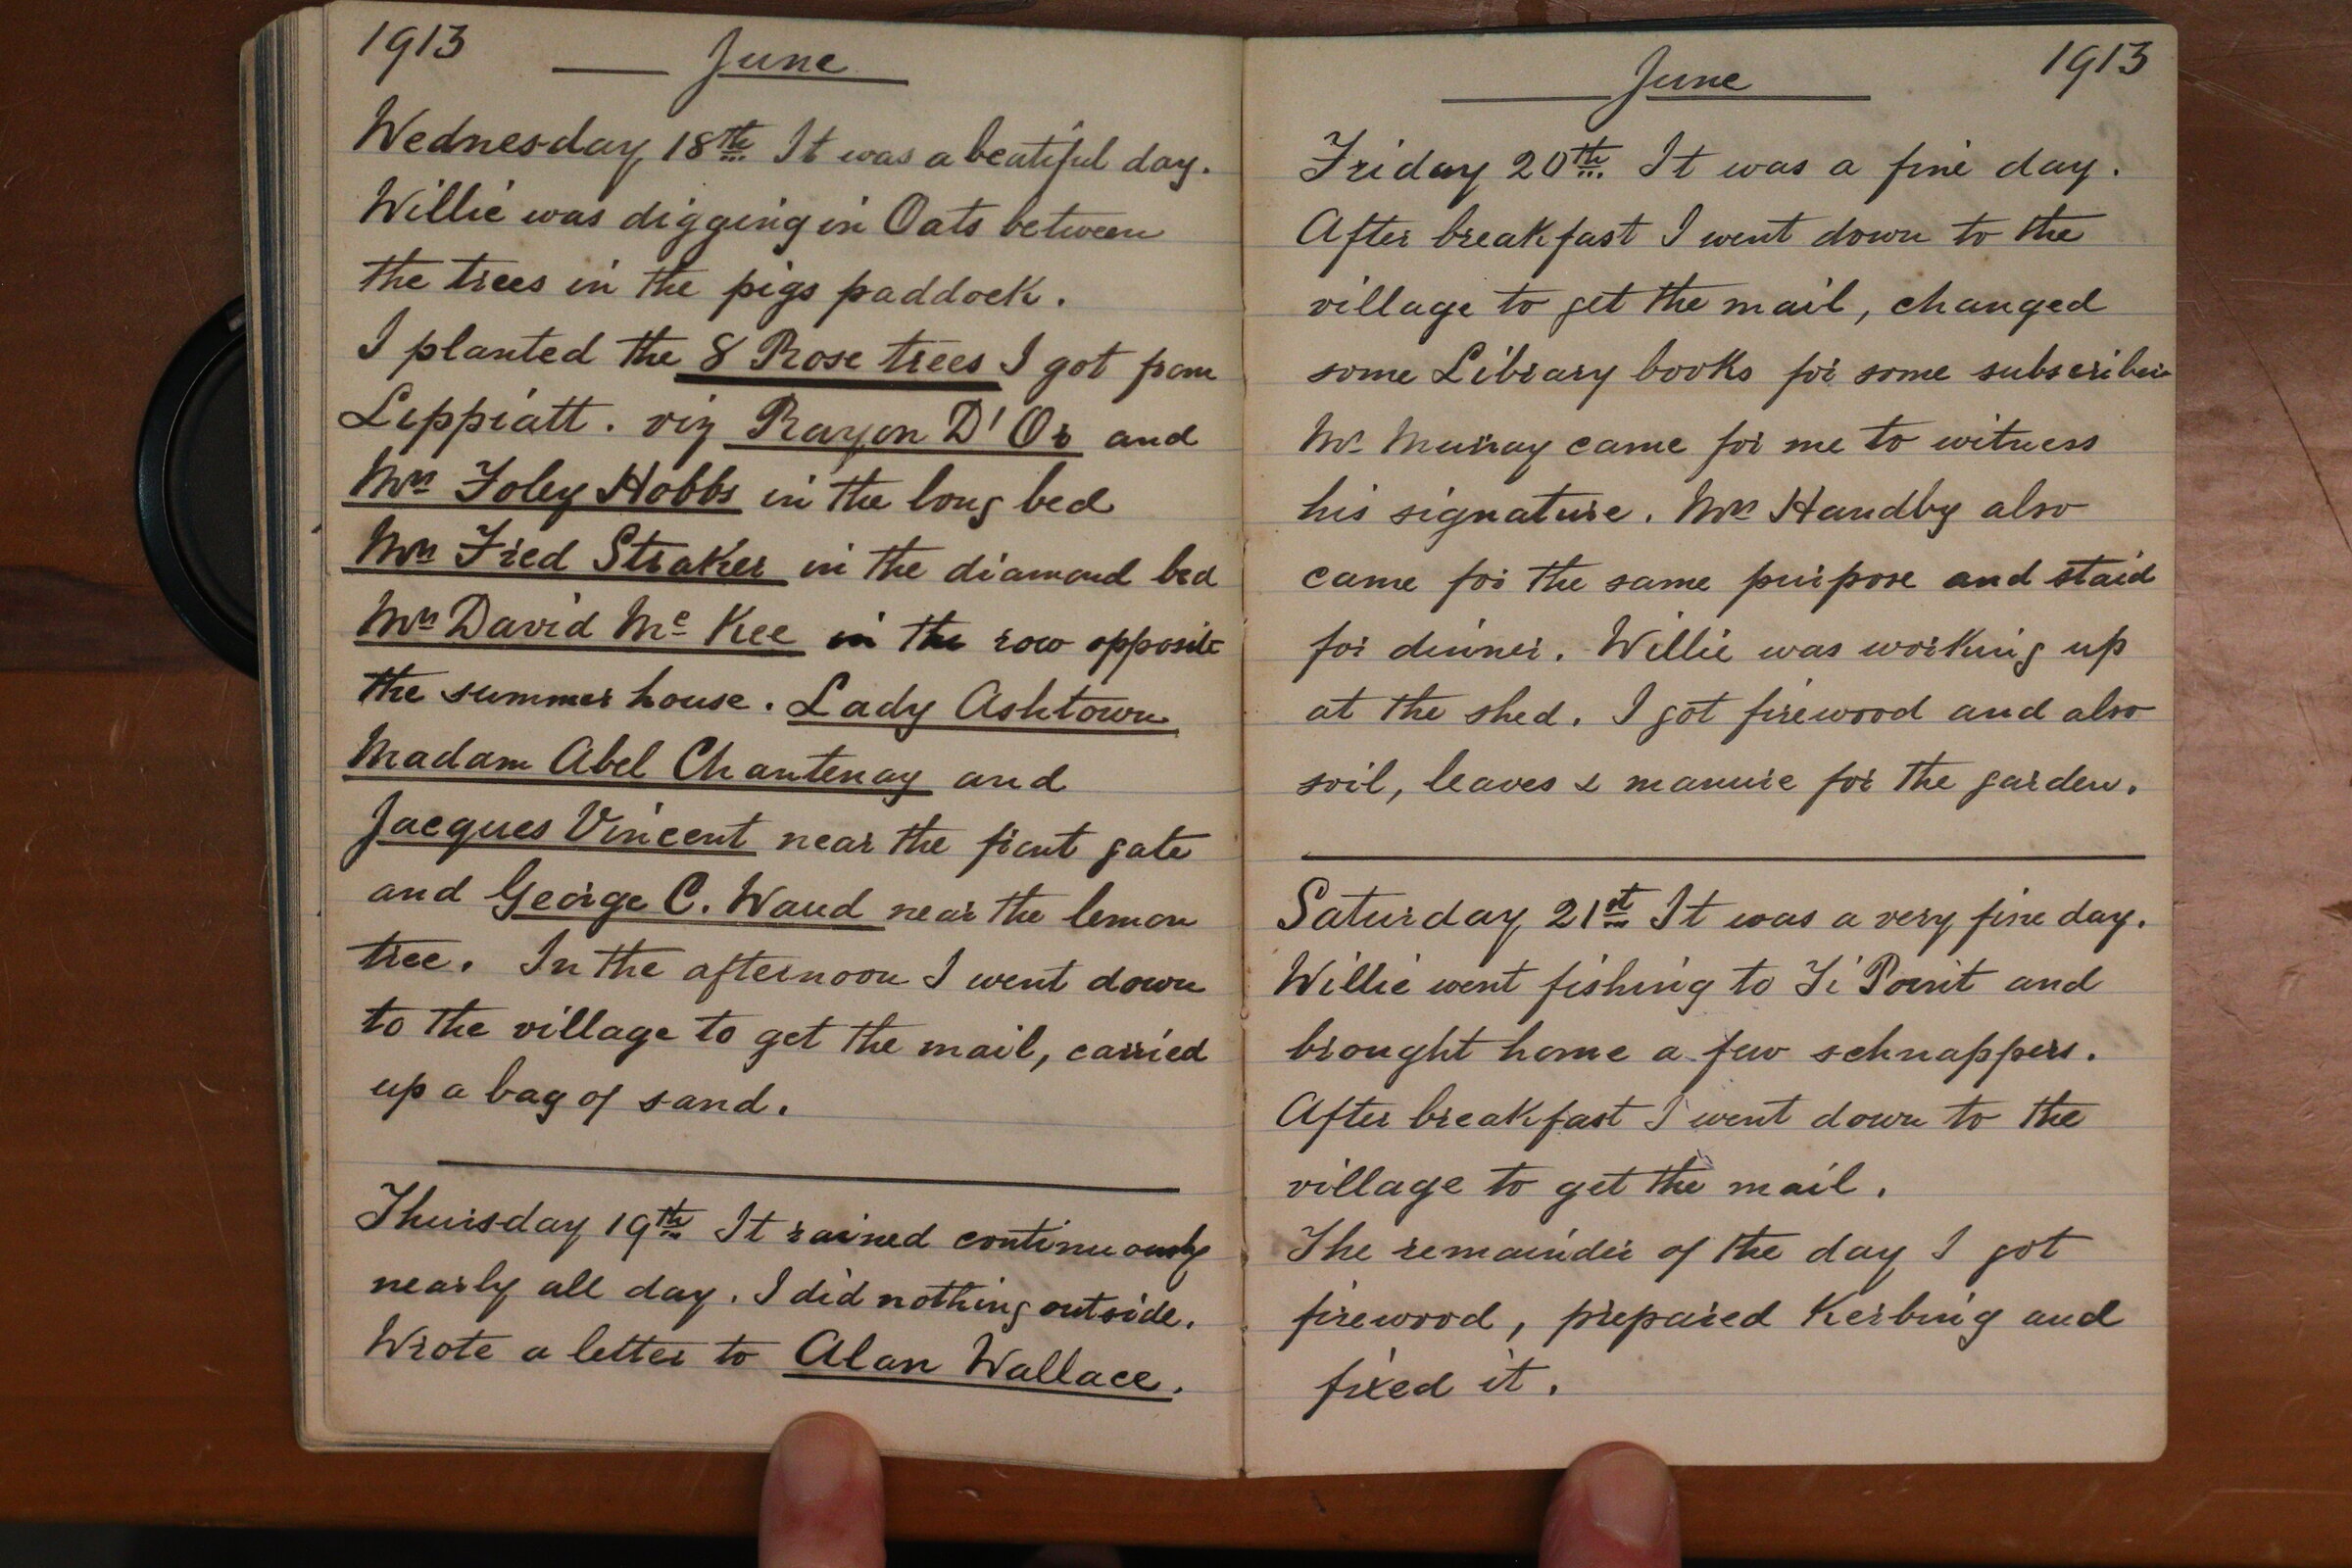 1913
June
Wednesday 18th It was a beatiful day.
Willie was digging in Oats between
the trees in the pigs paddock.
I planted the 8 Rose trees I got from
Lippiatt. viz Rayon D'Or and
Mrs Foley Hobbs in the long bed
Mrs Fred Straker in the diamond bed
Mrs David Mc Kee in the row opposite
the summer house. Lady Ashtown
Madam Abel Chantenay and
Jacques Vincent near the front gate
and George C. Waud near the lemon
tree. In the afternoon I went down
to the village to get the mail, carried
up a bag of sand.
Thursday 19th It rained continuously
nearly all day. I did nothing outside.
Wrote a letter to Alan Wallace.
June
1913
Friday 20th It was a fine day.
After breakfast I went down to the
village to get the mail, changed
some Library books for some subscribers
Mr Murray came for me to witness
his signature. Mrs Handby also
came for the same purpose and staid
for dinner. Willie was working up
at the shed. I got firewood and also
soil, leaves & manure for the garden.
Saturday 21st It was a very fine day.
Willie went fishing to Ti Point and
brought home a few schnappers.
After breakfast I went down to the
village to get the mail.
The remainder of the day I got
firewood, prepared Kerbing and
fixed it.